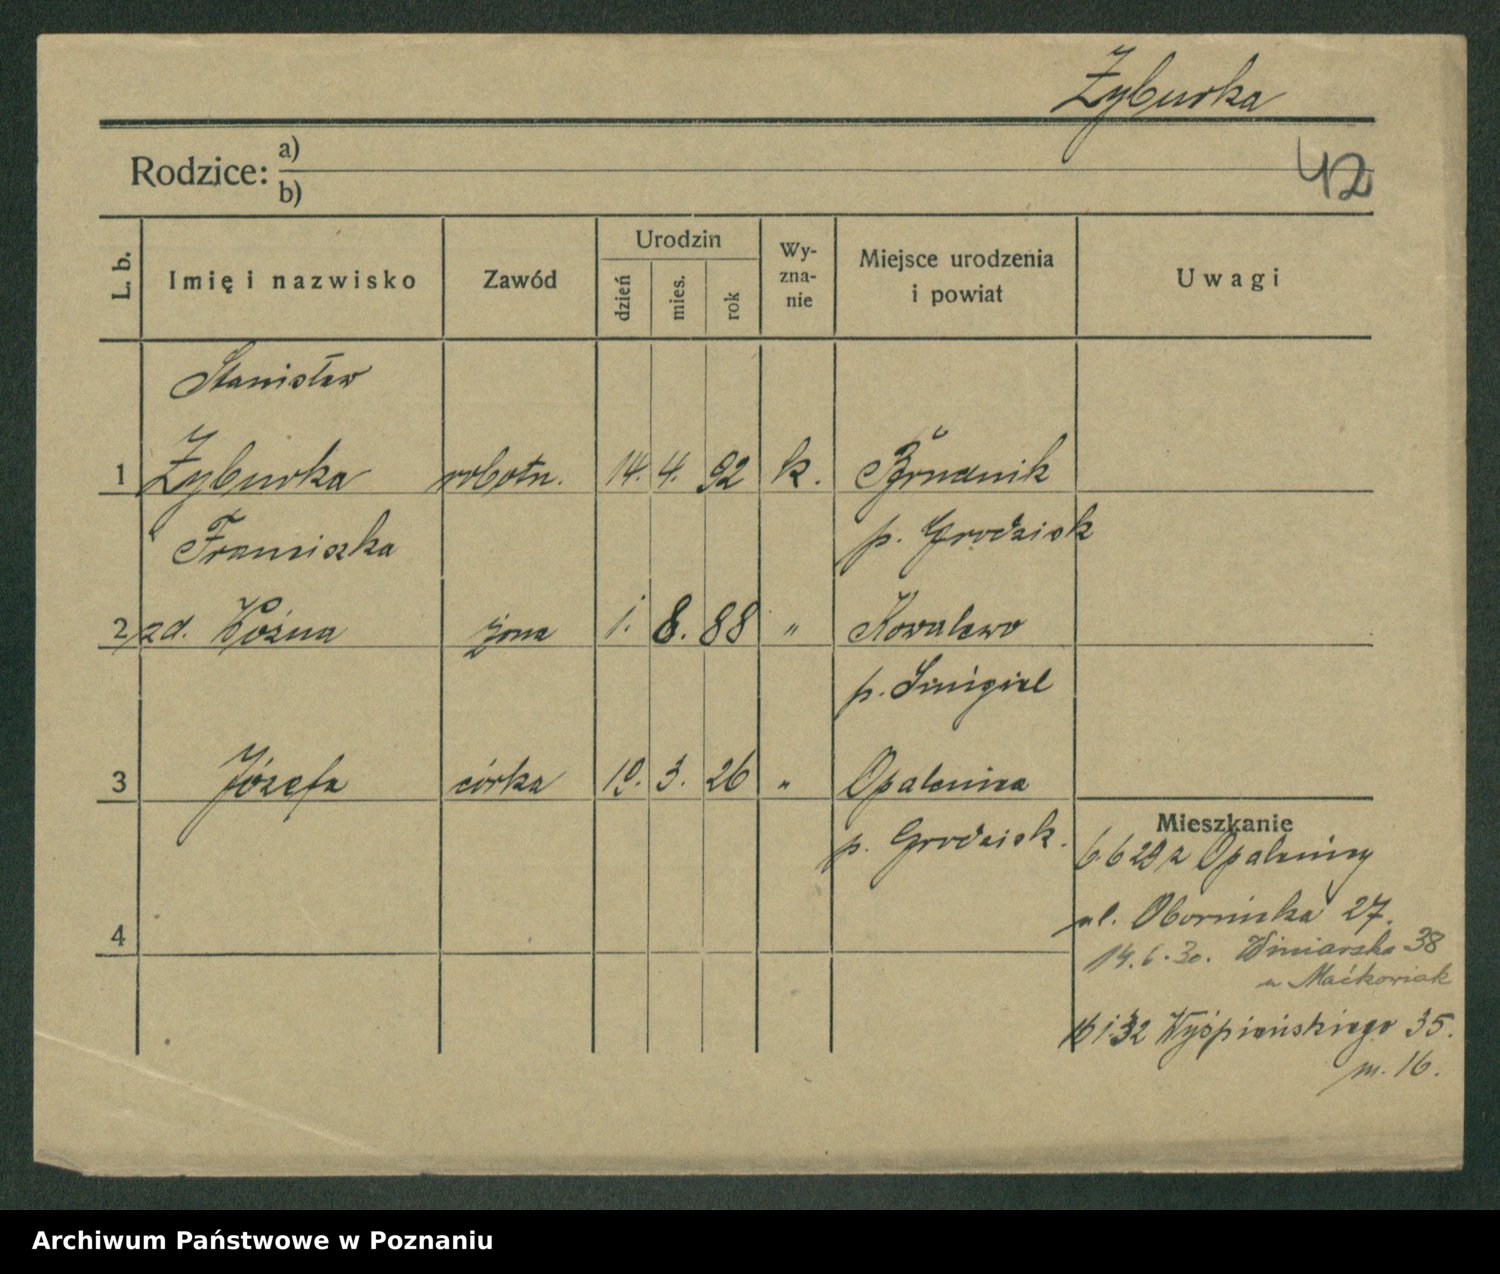 Żyburka
42
Rodzice: a)
b)
L. b.
Imię i nazwisko
Zawód
Urodzin
dzień
mies.
rok
Wy-
zna-
nie
Miejsce urodzenia
i powiat
Uwagi
Stanisław
1 Żyburka robotn. 14. 4. 92 k.
p. Grodzisk
Franciszka
2 zd. Woźna żona 1. 8. 88 " Kowalewo
p. Śmigiel
3 Józefa córka 19. 3. 26 " Opalenica
p. Grodzisk.
4
Mieszkanie
6.6 29 z Opalenicy
ul. Obornicka 27.
14.6.30. Winiarska 38
u Maćkowiak
16 1.32 Wyśpiańskiego 35.
m. 16.
Archiwum Państwowe w Poznaniu